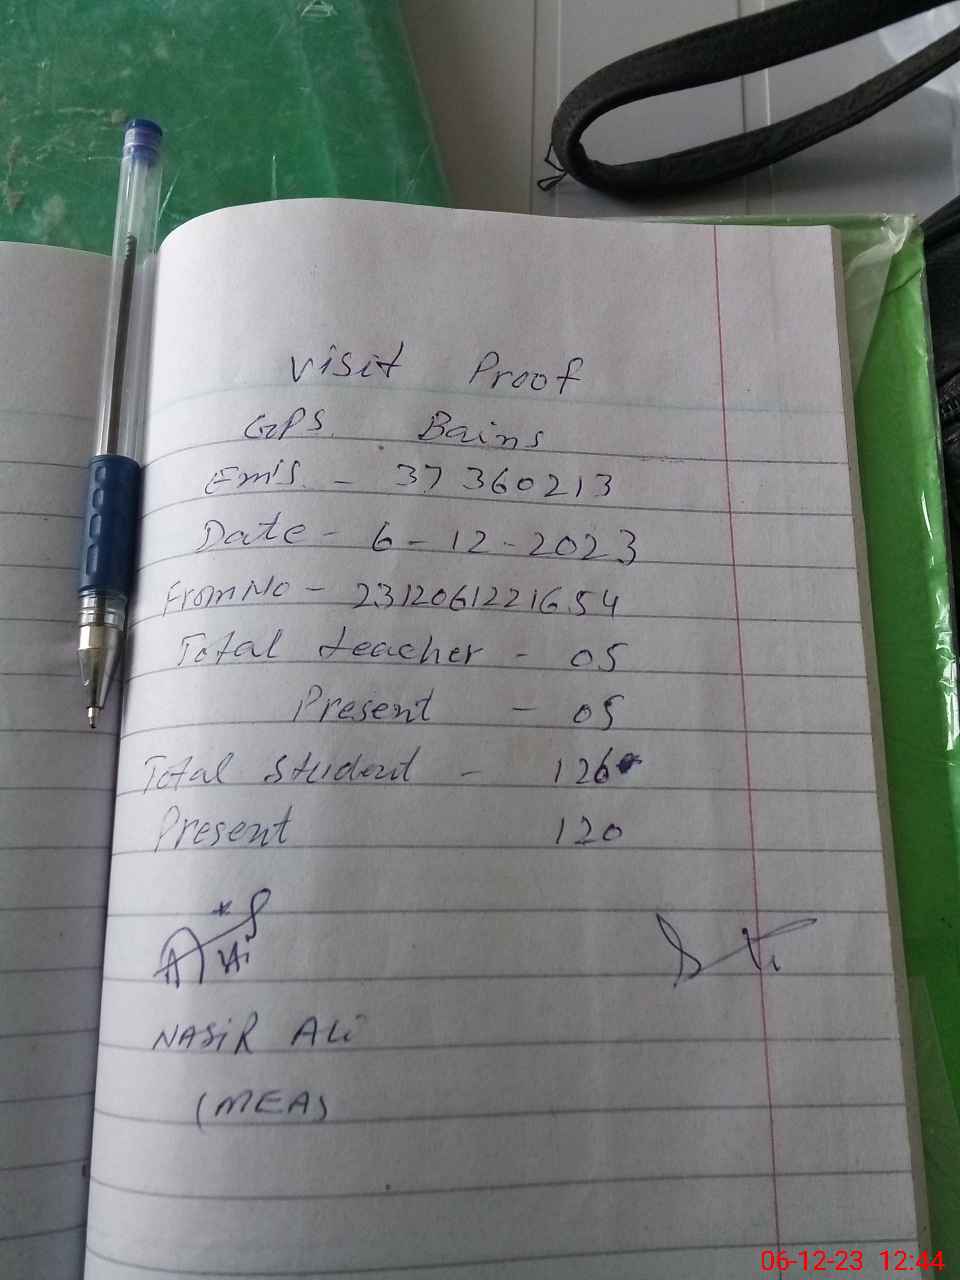 visit Proof
GPS. Bains
Emis. - 37360213
Date - 6-12-2023
From No - 2312061221654
Total teacher - 05
Present - 05
Total Student - 126
Present 120
NASIR ALi
(MEAS
06-12-23 12:44